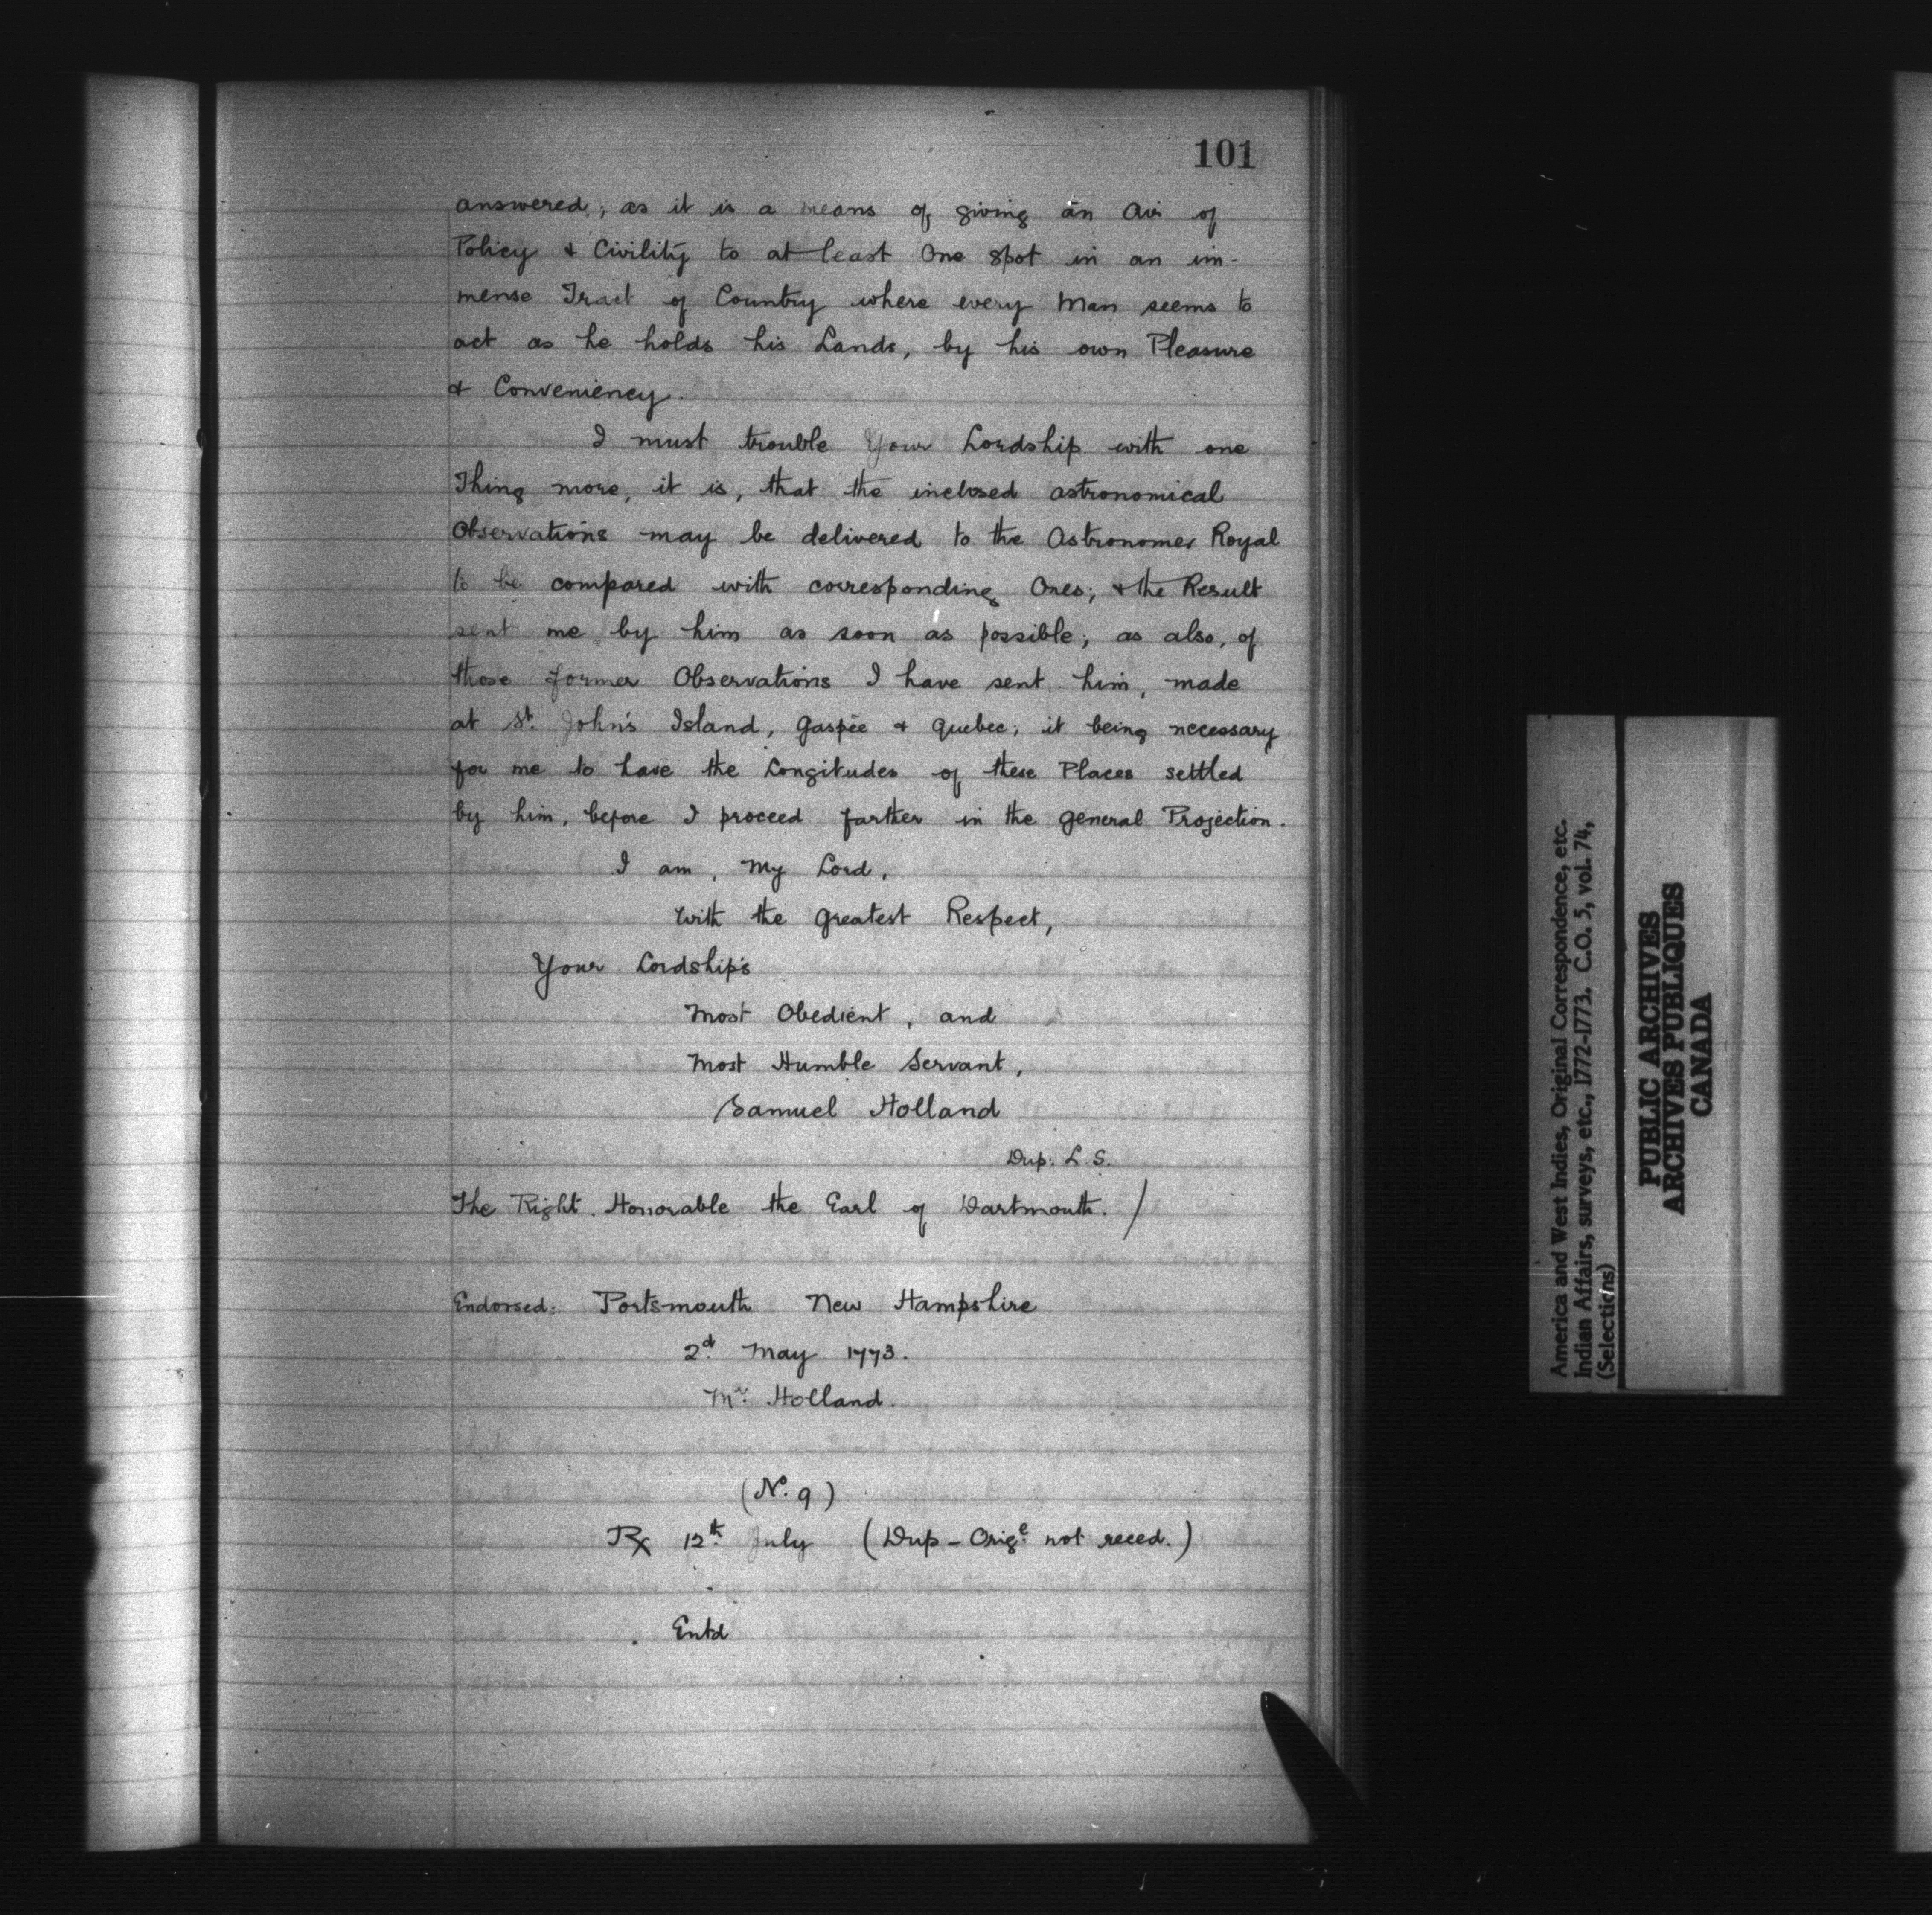 101
answered; as it is a means of giving an Air of
Policy & Civility to at least One Spot in an im-
mense Tract of Country where every Man seems to
act as he holds his Lands, by his own Pleasure
& Conveniency.
I must trouble Your Lordship with one
Thing more, it is, that the inclosed astronomical
Observations may be delivered to the Astronomer Royal
to be compared with corresponding Ones; & the Result
sent me by him as soon as possible; as also, of
those former Observations I have sent him, made
at St. John's Island, Gaspée & Quebec; it being necessary
for me to have the Longitudes of these Places settled
by him, before I proceed farther in the general Projection.
I am, My Lord,
With the greatest Respect,
Your Lordship's
Most Obedient, and
Most Humble Servant,
Samuel Holland
Dup: L. S.
The Right Honorable the Earl of Dartmouth. /
Endorsed: Portsmouth New Hampshire
2d. May 1773.
Mr. Holland.
(No. 9)
Rx 12th. July (Dup - Orige. not reced.)
Entd
America and West Indies, Original Correspondence, etc.
Indian Affairs, surveys, etc., 1772-1773. C.O. 5, vol. 74,
(Selections)
PUBLIC ARCHIVES
ARCHIVES PUBLIQUES
CANADA